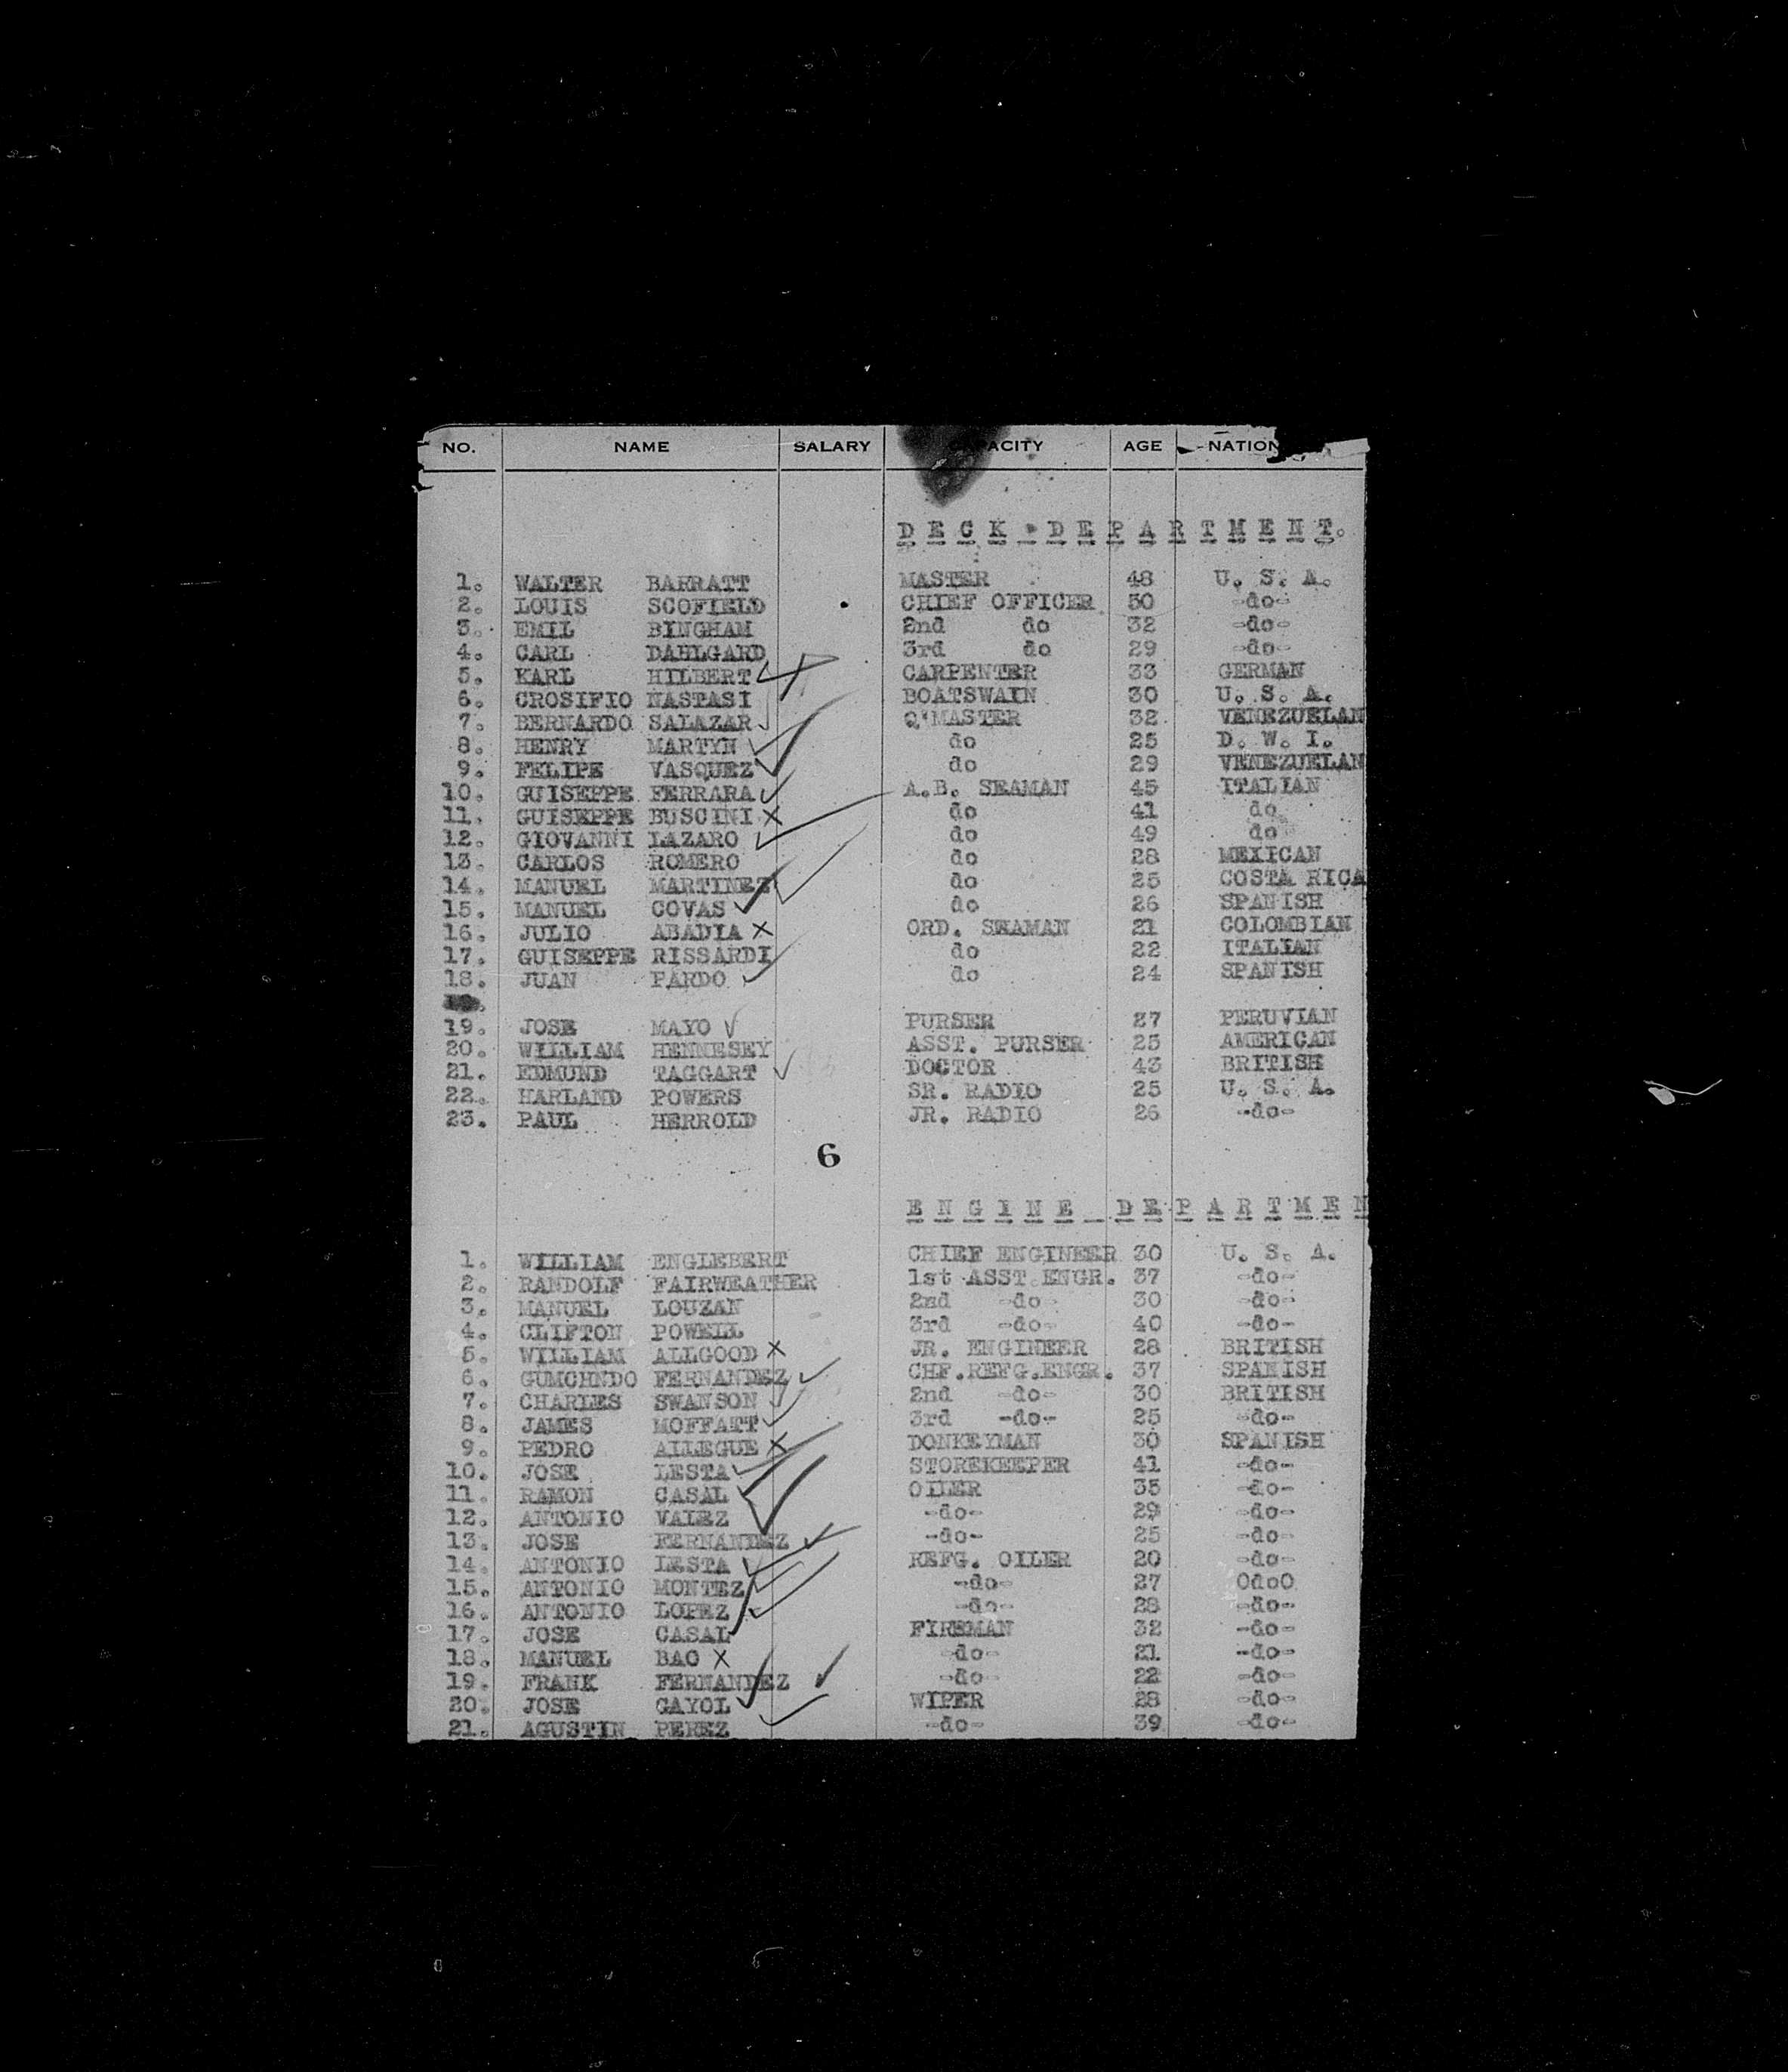 NO. NAME SALARY CAPACITY AGE NATION
DECK DEPARTMENT.
1. WALTER BARRATT MASTER 48 U. S. A.
2. LOUIS SCOFIELD CHIEF OFFICER 30 -do-
3. EMIL BINGHAM 2nd do 32 -do-
4. CARL DAHLGARD 3rd do 29 -do-
5. KARL HILBERT CARPENTER 33 GERMAN
6. CROSIFIO NASTASI BOATSWAIN 30 U. S. A.
7. BERNARDO SALAZAR Q'MASTER 32 VENEZUELAN
8. HENRY MARTYN do 25 D. W. I.
9. FELIPE VASQUEZ do 29 VENEZUELAN
10. GUISEPPE FERRARA A.B. SEAMAN 45 ITALIAN
11. GUISEPPE BUSCINI X do 41 do
12. GIOVANNI LAZARO do 49 do
13. CARLOS ROMERO do 28 MEXICAN
14. MANUEL MARTINEZ do 25 COSTA RICA
15. MANUEL COVAS do 26 SPANISH
16. JULIO ABADIA X ORD. SEAMAN 21 COLOMBIAN
17. GUISEPPE RISSARDI do 22 ITALIAN
18. JUAN PARDO do 24 SPANISH
19. JOSE MAYO PURSER 27 PERUVIAN
20. WILLIAM HENNESEY ASST. PURSER 25 AMERICAN
21. EDMUND TAGGART DOCTOR 43 BRITISH
22. HARLAND POWERS SR. RADIO 25 U. S. A.
23. PAUL HERROLD JR. RADIO 26 -do-
6
ENGINE DEPARTMEN
1. WILLIAM ENGLEBERT CHIEF ENGINEER 30 U. S. A.
2. RANDOLF FAIRWEATHER 1st ASST ENGR. 37 -do-
3. MANUEL LOUZAN 2nd -do- 30 -do-
4. CLIFTON POWELL 3rd -do- 40 -do-
5. WILLIAM ALLGOOD X JR. ENGINEER 28 BRITISH
6. GUMCHNDO FERNANDEZ CHF.REFG.ENGR. 37 SPANISH
7. CHARLES SWANSON 2nd -do- 30 BRITISH
8. JAMES MOFFATT 3rd -do- 25 -do-
9. PEDRO ALLEGUE X DONKEYMAN 30 SPANISH
10. JOSE LESTA STOREKEEPER 41 -do-
11. RAMON CASAL OILER 35 -do-
12. ANTONIO VALEZ -do- 29 -do-
13. JOSE FERNANDEZ -do- 25 -do-
14. ANTONIO LESTA REFG. OILER 20 -do-
15. ANTONIO MONTEZ -do- 27 OdoO
16. ANTONIO LOPEZ -do- 28 -do-
17. JOSE CASAL FIREMAN 32 -do-
18. MANUEL BAO X -do- 21 -do-
19. FRANK FERNANDEZ -do- 22 -do-
20. JOSE GAYOL WIPER 28 -do-
21. AGUSTIN PEREZ -do- 39 -do-